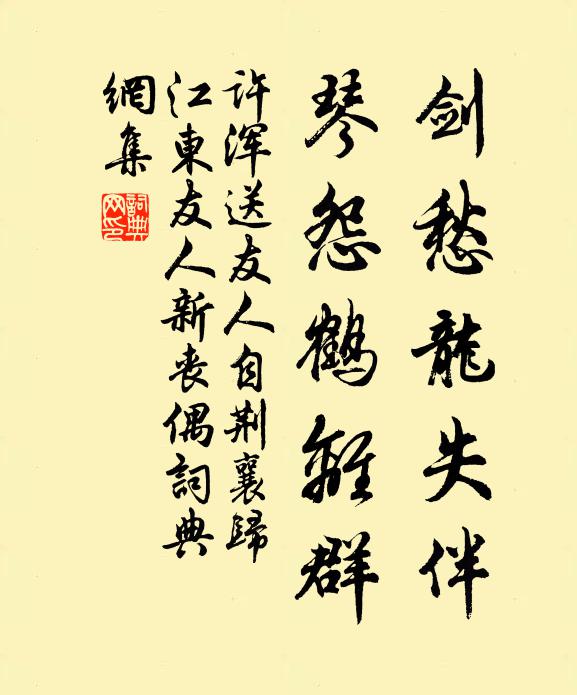 剑愁龍失伴
琴怨鶴離群
许浑送友人自荆襄歸
江東友人新丧偶詞典
網集
詞典
网印